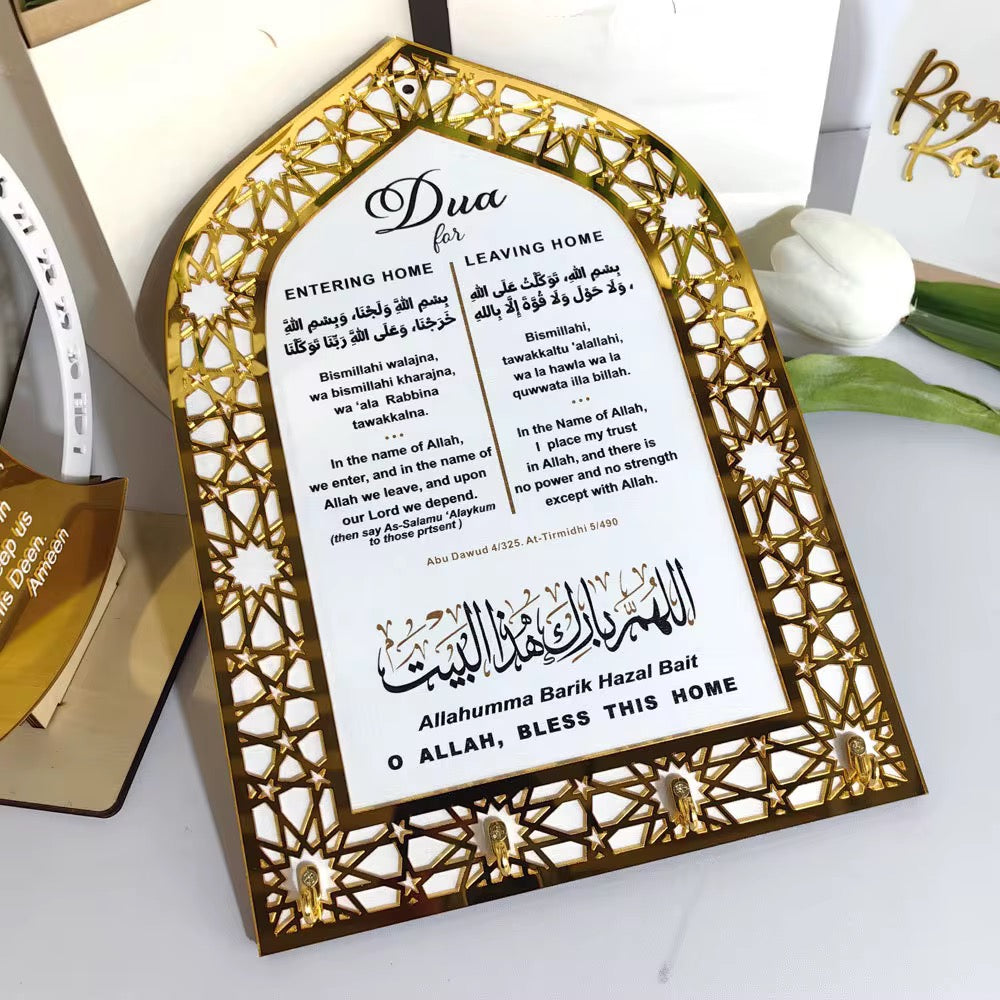 Dua
for
ENTERING HOME
بِسْمِ اللَّهِ وَلَجْنَا، وَبِسْمِ اللَّهِ
خَرَجْنَا، وَعَلَى اللَّهِ رَبِّنَا تَوَكَّلْنَا
Bismillahi walajna,
wa bismillahi kharajna,
wa 'ala Rabbina
tawakkalna.
In the Name of Allah,
we enter, and in the name of
Allah we leave, and upon
our Lord we depend.
(then say As-Salamu 'Alaykum
to those prtsent )
LEAVING HOME
بِسْمِ اللهِ، تَوَكَّلْتُ عَلَى اللهِ
، وَلَا حَوْلَ وَلَا قُوَّةَ إِلَّا بِاللهِ
Bismillahi,
tawakkaltu 'alallahi,
wa la hawla wa la
quwwata illa billah.
In the Name of Allah,
I place my trust
in Allah, and there is
no power and no strength
except with Allah.
Abu Dawud 4/325. At-Tirmidhi 5/490
اللهم بارك هذا البيت
Allahumma Barik Hazal Bait
O ALLAH, BLESS THIS HOME
in
eep us
his Deen.
Ameen